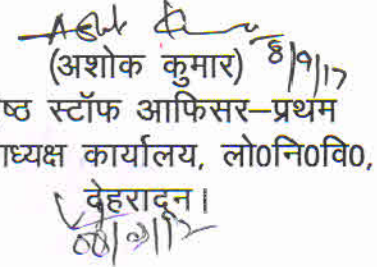 (अशोक कुमार) 8/9/17
ष्ठ स्टॉफ आफिसर–प्रथम
ाध्यक्ष कार्यालय, लो0नि0वि0,
देहरादून।